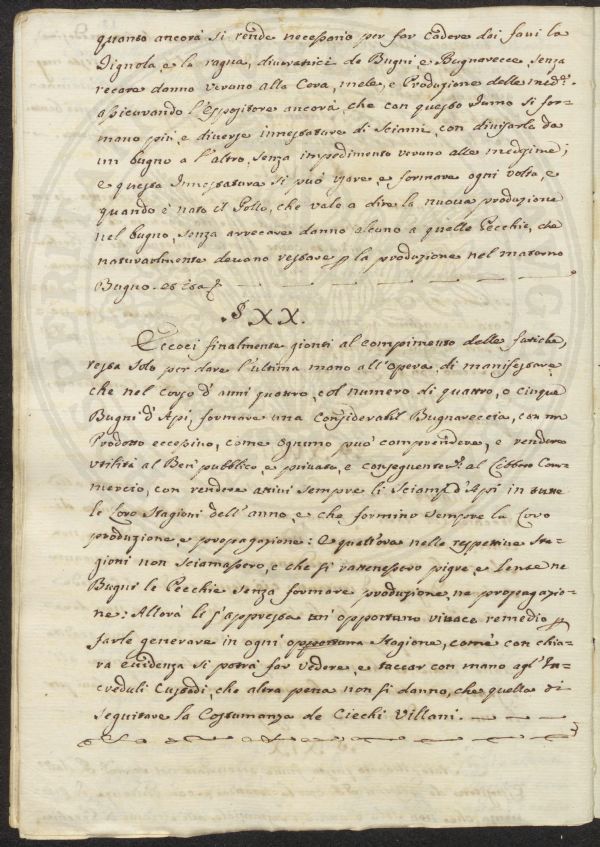 quanto ancora si rende necessario per far cadere dai favi la
Tignola, e la ragna, divoratrici de Bugni, e Bugnarecce, senza
recare danno veruno alla Cera, mele, e Produzione delle med.e
assicurando l'Espositore ancora, che con questo fumo si for-
mano più, e diverse innestature di Sciami, con divisarle da
un bugno a l'altro, senza impedimento veruno alle medesime;
e questa Innestatura si può usare, e formare ogni volta, e
quando è nato il Pollo, che vale a dire la nuova produzione
nel bugno, senza arrecare danno alcuno a quelle Pecchie, che
naturalmente devono restare p la produzione nel materno
Bugno.
§ XX.
Eccoci finalmente gionti al compimento delle fatiche,
resta solo per dare l'ultima mano all'Opera, di manifestare,
che nel corso d'anni quattro, col numero di quattro, o cinque
Bugni d'Api, formare una Considerabil Bugnareccia, con un
Prodotto eccessivo, come ognuno può comprendere, e rendere
utilità al Ben pubblico, e privato, e conseguentem.e al Com-
mercio, con rendere attivi sempre li Sciami d'Api in tutte
le Loro Stagioni dell'anno, e che formino sempre la Loro
produzione, e propagazione: E qualt'ora nelle respettive Sta-
gioni non Sciamassero, e che si rattenessero pigre, e Lente ne
Bugni le Pecchie senza formare produzione, ne propagazio-
ne: Allora li s'appresta un' opportuno vivace remedio p
farle generare in ogni opportuna Stagione, come con chia-
ra evidenza si potrà far vedere, e toccar con mano agl'In-
creduli Custodi, che altra pena non si danno, che quella di
seguitare la Costumanza de Ciechi Villani.